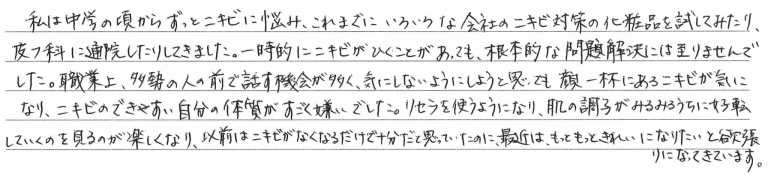 私は中学の頃からずっとニキビに悩み、これまでにいろいろな会社のニキビ対策の化粧品を試してみたり、
皮フ科に通院したりしてきました。一時的にニキビがひくことがあっても、根本的な問題解決には至りませんで
した。職業上、多勢の人の前で話す機会が多く、気にしないようにしようと思っても顔一杯にあるニキビが気に
なり、ニキビのできやすい自分の体質がすごく嫌いでした。リセラを使うようになり、肌の調子がみるみるうちに好転
していくのを見るのが楽しくなり、以前はニキビがなくなるだけで十分だと思っていたのに、最近は、もっともっときれいになりたいと欲張
りになってきています。